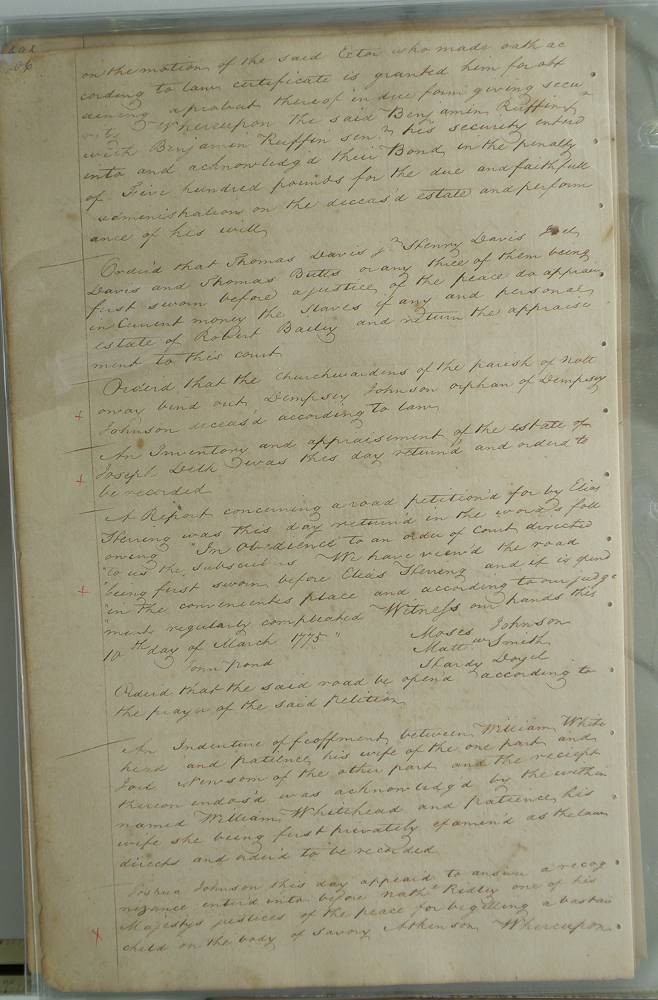 on the motion of the said Exor who made oath ac
cording to law certificate is granted him for obt
aining a probat thereof in due form giving secu
rity Whereupon the said Benjamin Ruffin
with Benjamin Ruffin senr his security enterd
into and acknowledg'd their Bond in the penalty
of Five hundred pounds for the due and faithfull
administration on the deceas'd estate and perform
ance of his will
Order'd that Thomas Davis jr Henry Davis
Davis and Thomas Butts or any three of them being
first sworn before a justice of the peace do apprais
in Current money the Slaves if any and personal
estate of Robert Bailey and return the appraise
ment to this court
Orderd that the Churchwardens of the parish of Nott
oway bind out Dempsey Johnson orphan of Dempsey
Johnson deceas'd according to law
An Inventory and appraisement of the estate of
Joseph Delk was this day return'd and orderd to
be recorded
A Report concerning a road petition'd for by Elias
Herring was this day return'd in the words foll
owing "In Obedience to an order of Court directed
"to us the Subscribers We have view'd the road
"being first sworn before Elias Herring and it is
"in the convenientes place and according to our judge
"ment regularly compleated Witness our hands this
10th day of March 1775"
Moses Johnson
Mattw Smith
Hardy Doyel
Orderd that the said road be open'd according to
the prayer of the said Petition
An Indenture of feoffment between William White
head and Patience his wife of the one part and
Joel Newsom of the other part and the reciept
thereon endors'd was acknowledg'd by the within
named William Whitehead and Patience his
wife she being first privately examin'd as the law
directs and order'd to be recorded
Joshua Johnson this day appeard to answer a recog
nizance enter'd into before Nathl Ridley one of his
Majestys justices of the peace for begetting a bastard
child on the body of Savory Atkinson Whereupon